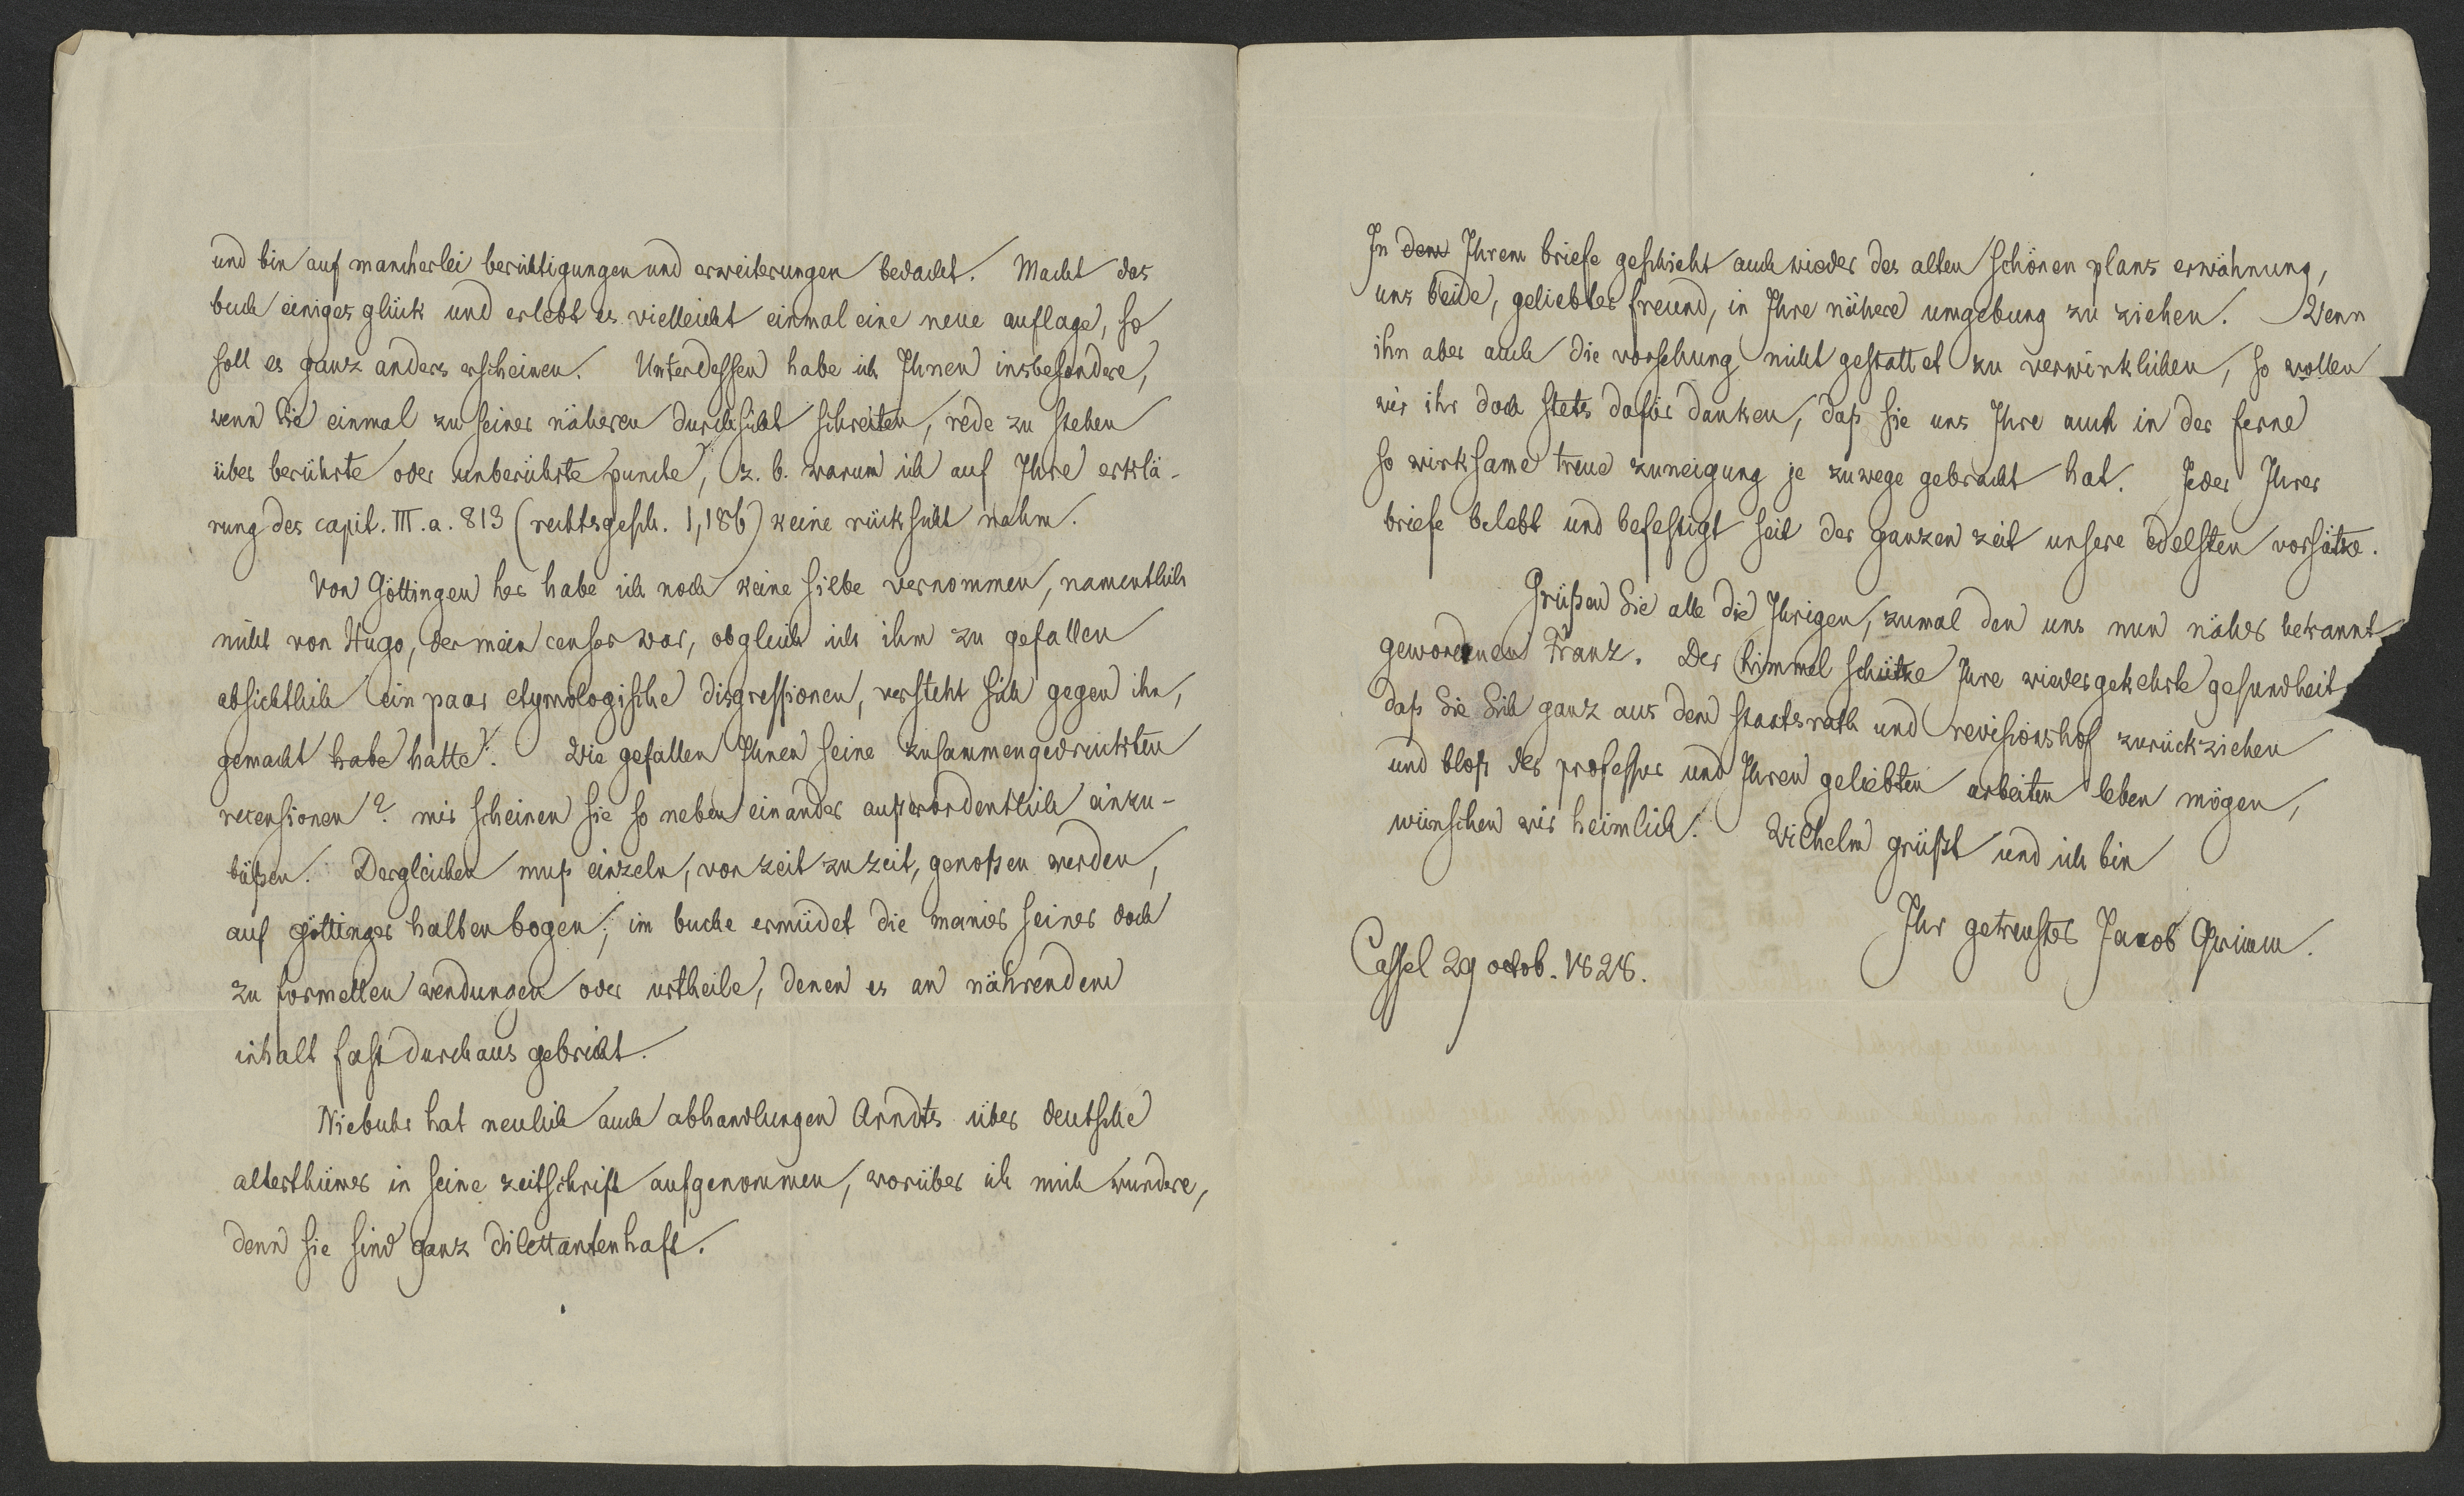 und bin auf mancherlei berichtigungen und erweiterungen bedacht. Macht das
buch einiges glück und erlebt es vielleicht einmal eine neue auflage, so
soll es ganz anders erscheinen. Unterdessen habe ich Ihnen insbesondere,
wenn Sie einmal zu seiner näheren durchsicht schreiten, rede zu stehen
über berührte oder unberührte puncte, z. b. warum ich auf Ihre erklä-
rung des capit. III. a. 813 (rechtsgesch. 1,186) keine rücksicht nahm.
Von Göttingen her habe ich noch keine silbe vernommen, namentlich
nicht von Hugo, der mein censor war, obgleich ich ihm zu gefallen
absichtlich ein paar etymologische disgressionen, versteht sich gegen ihn,
gemacht habe hatte. Wie gefallen Ihnen seine zusammengedruckten
recensionen? mir scheinen sie so neben einander außerordentlich einzu-
büßen. Dergleichen muß einzeln, von zeit zu zeit, genoßen werden,
auf Göttinger halben bogen; im buche ermüdet die manier seiner doch
zu formellen wendungen oder urtheile, denen es an nährendem
inhalt fast durchaus gebricht.
Niebuhr hat neulich auch abhandlungen Arndts über deutsche
alterthümer in seine zeitschrift aufgenommen, worüber ich mich wundere,
denn sie sind ganz dilettantenhaft.
In dem Ihrem briefe geschieht auch wieder des alten schönen plans erwähnung,
uns beide, geliebter freund, in Ihre nähere umgebung zu ziehen. Wenn
ihn aber auch die vorsehung nicht gestattet zu verwirklichen, so wollen
wir ihr doch stets dafür danken, daß sie uns Ihre auch in der ferne
so wirksame treue zuneigung je zuwege gebracht hat. Jeder Ihrer
briefe belebt und befestigt seit der ganzen zeit unsere edelsten vorsätze.
Grüßen Sie alle die Ihrigen, zumal den uns nun näher bekannt
gewordenen Franz. Der himmel schütze Ihre wiedergekehrte gesundheit
daß Sie Sich ganz aus dem staatsrath und revisionshof zurückziehen
und bloß der professur und Ihren geliebten arbeiten leben mögen,
wünschen wir heimlich. Wilhelm grüßt und ich bin
Ihr getreuster Jacob Grimm.
Cassel 29 octob. 1828.